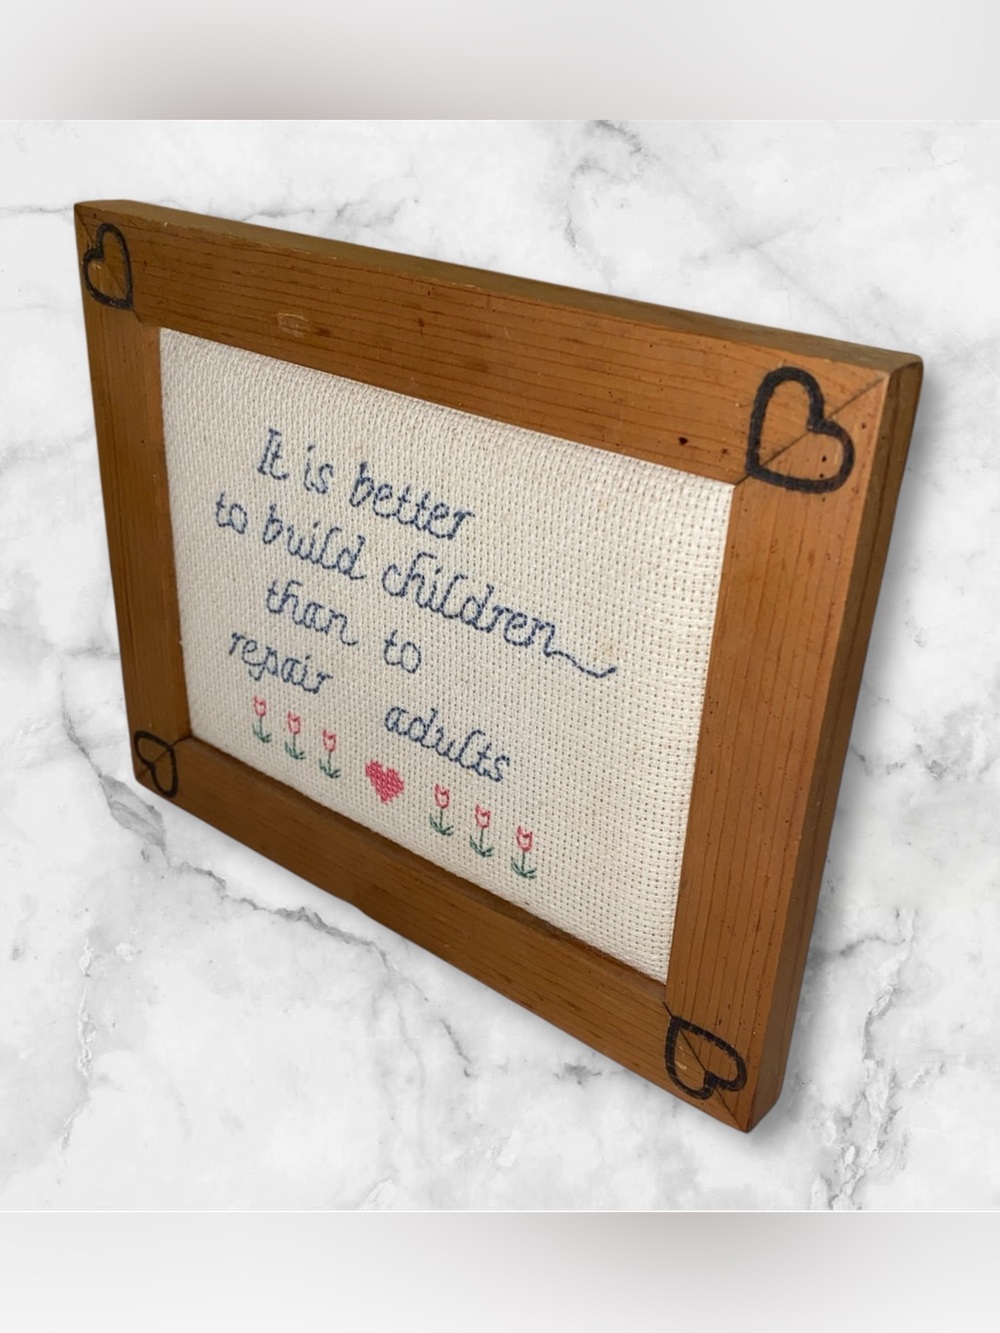 It is better
to build children
than to
repair adults